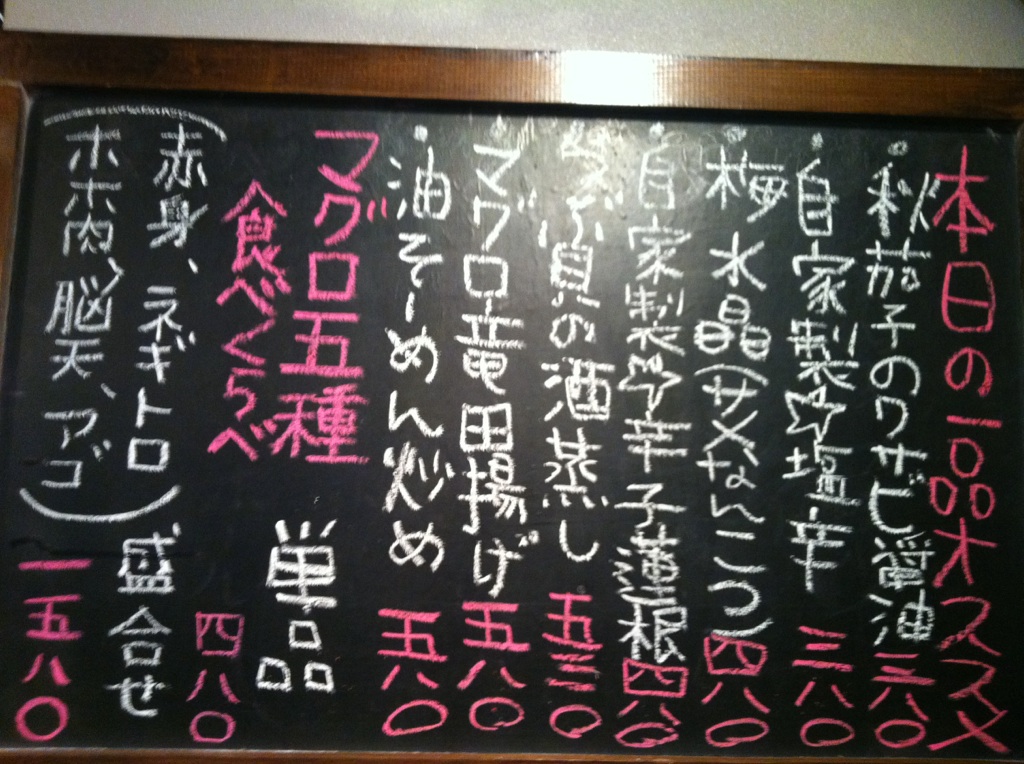 本日の一品オススメ
・秋茄子のワサビ醤油 三八〇
・自家製☆塩辛 三八〇
・梅水晶(サメなんこつ) 四八〇
・自家製☆辛子蓮根 四八〇
つぶ貝の酒蒸し 五三〇
・マグロ竜田揚げ 五八〇
・油そーめん炒め 五八〇
マグロ五種 単品
食べくらべ 四八〇
(赤身、ネギトロ 盛合せ
ホホ肉、脳天、アゴ) 一五八〇